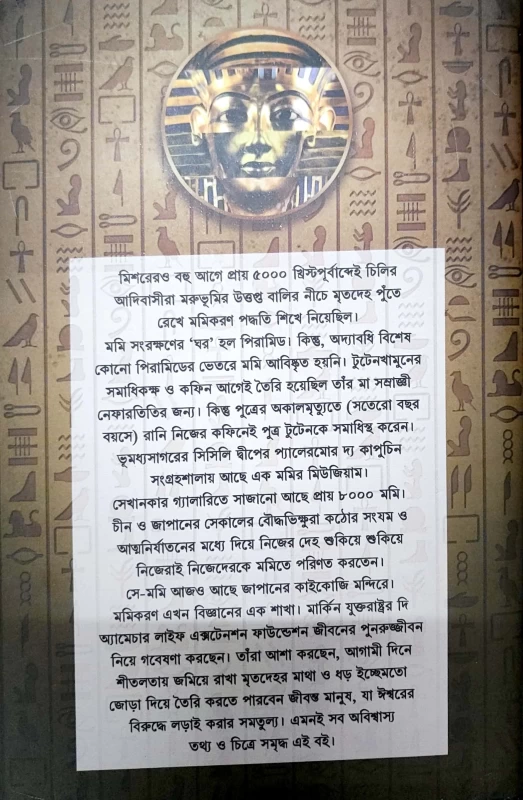 মিশরেরও বহু আগে প্রায় ৫০০০ খ্রিস্টপূর্বাব্দেই চিলির
আদিবাসীরা মরুভূমির উত্তপ্ত বালির নীচে মৃতদেহ পুঁতে
রেখে মমিকরণ পদ্ধতি শিখে নিয়েছিল।
মমি সংরক্ষণের ‘ঘর’ হল পিরামিড। কিন্তু, অদ্যাবধি বিশেষ
কোনো পিরামিডের ভেতরে মমি আবিষ্কৃত হয়নি। টুটেনখামুনের
সমাধিকক্ষ ও কফিন আগেই তৈরি হয়েছিল তাঁর মা সম্রাজ্ঞী
নেফারতিতির জন্য। কিন্তু পুত্রের অকালমৃত্যুতে (সতেরো বছর
বয়সে) রানি নিজের কফিনেই পুত্র টুটেনকে সমাধিস্থ করেন।
ভূমধ্যসাগরের সিসিলি দ্বীপের প্যালেরমোর দ্য কাপুচিন
সংগ্রহশালায় আছে এক মমির মিউজিয়াম।
সেখানকার গ্যালারিতে সাজানো আছে প্রায় ৮০০০ মমি।
চীন ও জাপানের সেকালের বৌদ্ধভিক্ষুরা কঠোর সংযম ও
আত্মনির্যাতনের মধ্যে দিয়ে নিজের দেহ শুকিয়ে শুকিয়ে
নিজেরাই নিজেদেরকে মমিতে পরিণত করতেন।
সে-মমি আজও আছে জাপানের কাইকোজি মন্দিরে।
মমিকরণ এখন বিজ্ঞানের এক শাখা। মার্কিন যুক্তরাষ্ট্রের দি
অ্যামেচার লাইফ এক্সটেনশন ফাউন্ডেশন জীবনের পুনরুজ্জীবন
নিয়ে গবেষণা করছেন। তাঁরা আশা করছেন, আগামী দিনে
শীতলতায় জমিয়ে রাখা মৃতদেহর মাথা ও ধড় ইচ্ছেমতো
জোড়া দিয়ে তৈরি করতে পারবেন জীবন্ত মানুষ, যা ঈশ্বরের
বিরুদ্ধে লড়াই করার সমতুল্য। এমনই সব অবিশ্বাস্য
তথ্য ও চিত্রে সমৃদ্ধ এই বই।